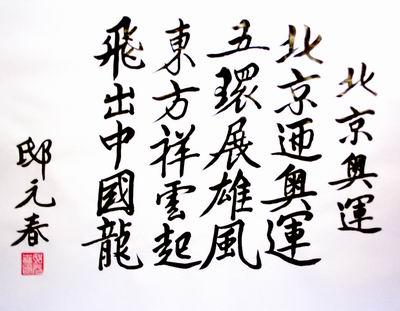 北京奧運
北京迊奧運
五環展雄風
東方祥雲起
飛出中國龍
邸元春